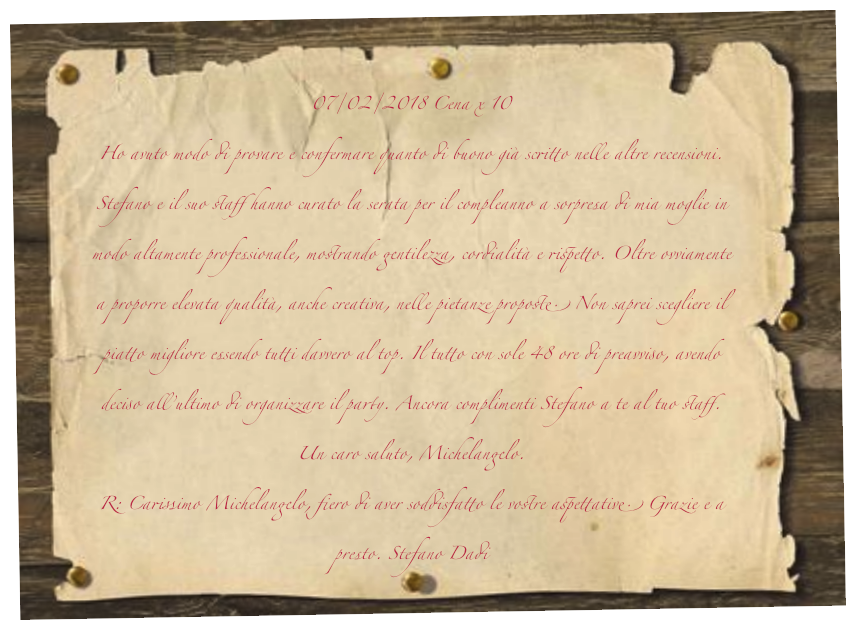 07/02/2018 Cena x 10
Ho avuto modo di provare e confermare quanto di buono già scritto nelle altre recensioni.
Stefano e il suo staff hanno curato la serata per il compleanno a sorpresa di mia moglie in
modo altamente professionale, mostrando gentilezza, cordialità e rispetto. Oltre ovviamente
a proporre elevata qualità, anche creativa, nelle pietanze proposte. Non saprei scegliere il
piatto migliore essendo tutti davvero al top. Il tutto con sole 48 ore di preavviso, avendo
deciso all'ultimo di organizzare il party. Ancora complimenti Stefano a te al tuo staff.
Un caro saluto, Michelangelo.
R: Carissimo Michelangelo, fiero di aver soddisfatto le vostre aspettative. Grazie e a
presto. Stefano Dadi